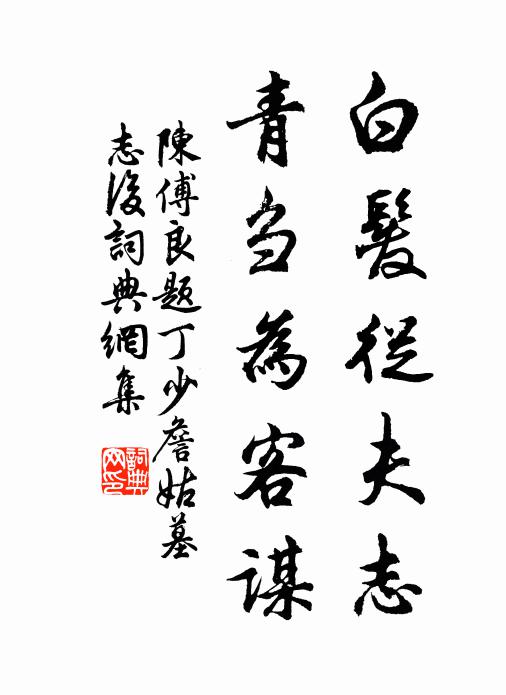 白髮從夫志
青芻為客謀
陳傅良題丁少詹姑墓
志後詞典網集
詞典網印